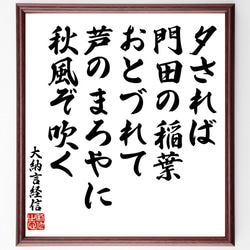 夕されば
門田の稲葉
おとづれて
芦のまろやに
秋風ぞ吹く
大納言経信